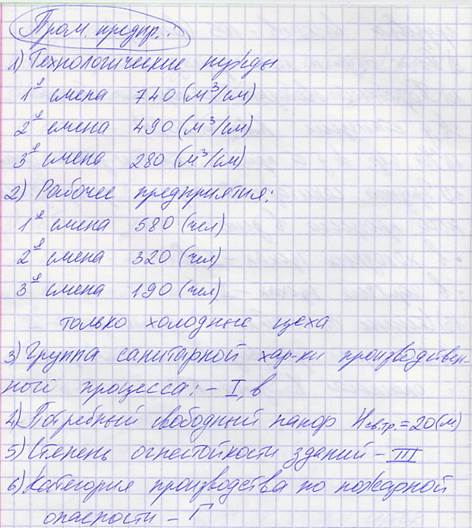 Пром предпр.:
1) Технологические нужды
1я смена 740 (м³/см)
2я смена 490 (м³/см)
3я смена 280 (м³/см)
2) Рабочее предприятия:
1я смена 580 (чел)
2я смена 320 (чел)
3я смена 190 (чел)
только холодные цеха
3) Группа санитарной хар-ки производствен-
ного процесса: - I, в
4) Потребный свободный напор Нсв.тр. = 20 (м)
5) Степень огнестойкости зданий - III
6) Категория производства по пожарной
опасности - Г